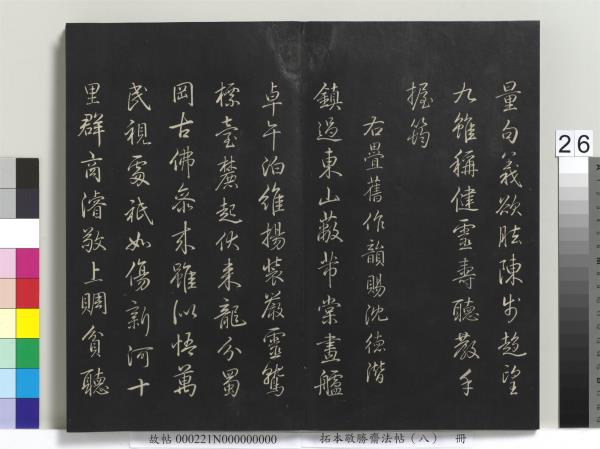 量句義欲陳步趁望
九雖稱健靈壽聽教手
握筠
右疊舊作韻賜沈德潛
鎮過東山蔽芾棠畫艫
卓午泊維揚裝嚴靈鷲
標臺麓起伏來龍分蜀
岡古佛參來雖似悟萬
民視處祇如傷新河十
里群商濬敬上賙貧聽
26
故帖 000221N000000000
拓本敬勝齋法帖（八） 冊